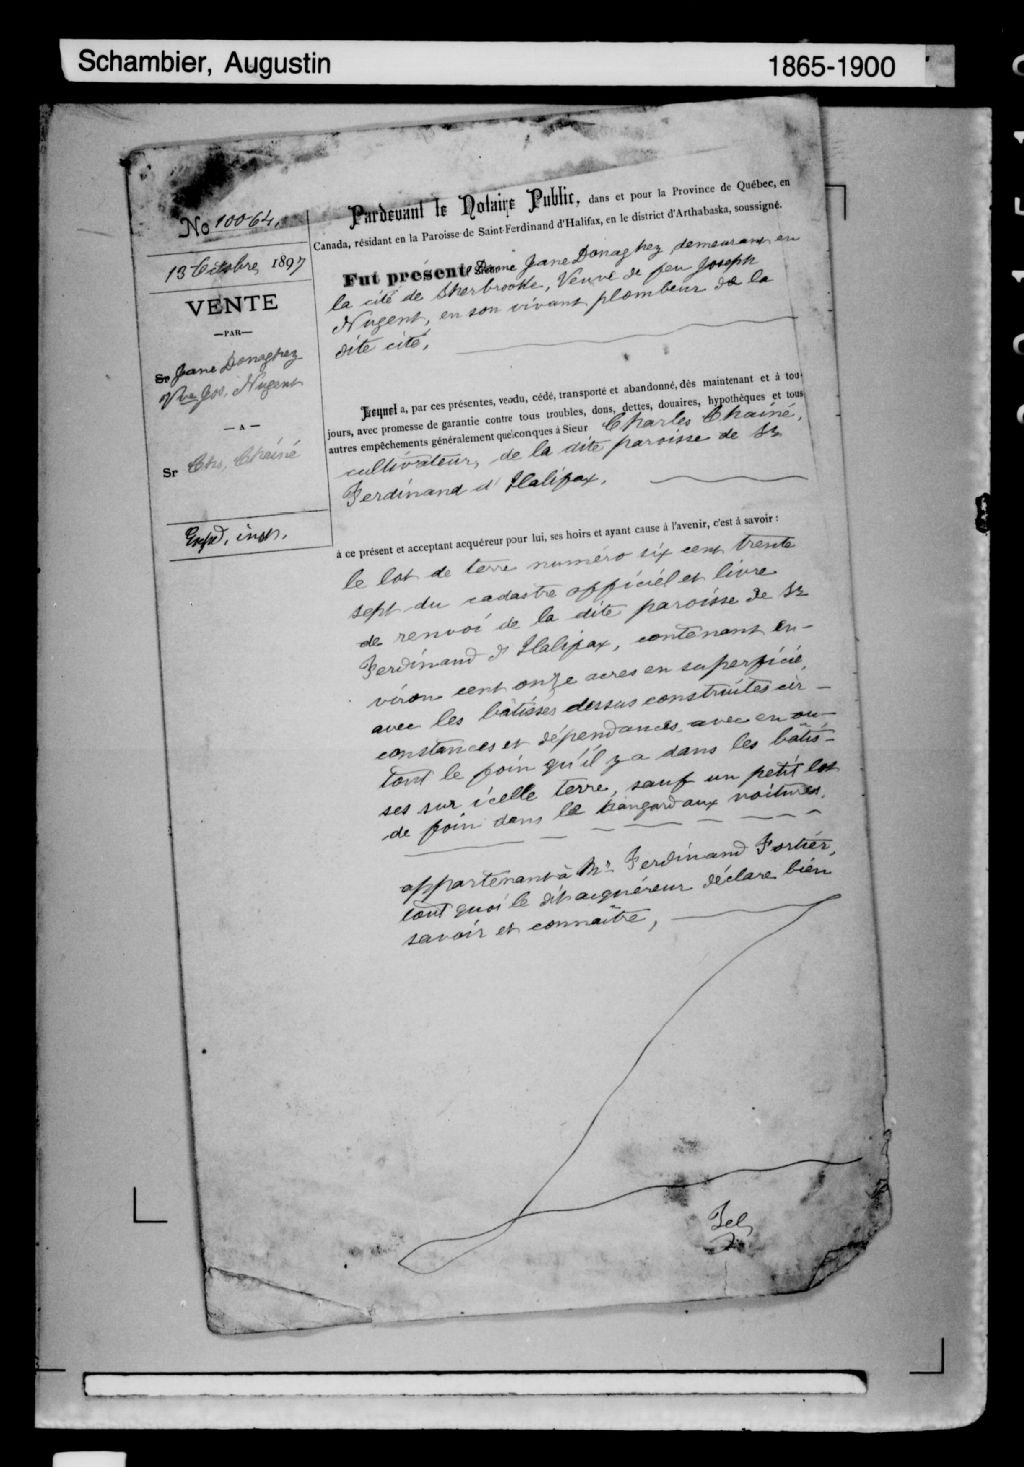 Schambier, Augustin
1865-1900
No 10064.
13 Octobre 1897
VENTE
—PAR—
Se Jane Donaghey
Vve Jos. Nugent
— A —
Sr Chs. Chainé
Expd. insp.
Pardevant le Notaire Public, dans et pour la Province de Québec, en
Canada, résidant en la Paroisse de Saint-Ferdinand d'Halifax, en le district d'Arthabaska, soussigné.
Fut présente Dame Jane Donaghey demeurant en
la cité de Sherbrooke, Veuve de feu Joseph
Nugent, en son vivant plombeur de la
dite cité,
Lequel a, par ces présentes, vendu, cédé, transporté et abandonné, dès maintenant et à tou-
jours, avec promesse de garantie contre tous troubles, dons, dettes, douaires, hypothèques et tous
autres empêchements généralement quelconques à Sieur Charles Chainé,
cultivateur, de la dite paroisse de St
Ferdinand d'Halifax,
à ce présent et acceptant acquéreur pour lui, ses hoirs et ayant cause à l'avenir, c'est à savoir :
le lot de terre numéro six cent trente
sept du cadastre officiel et livre
de renvoi de la dite paroisse de St
Ferdinand d'Halifax, contenant en-
viron cent onze acres en superficie,
avec les bâtisses dessus construites cir-
constances et dépendances, avec en ou-
tout le foin qu'il y a dans les bâtis-
ses sur icelle terre, sauf un petit lot
de foin dans le hangard aux voitures,
appartenant à Mr Ferdinand Fortier,
tout quoi le dit acquéreur déclare bien
savoir et connaître,